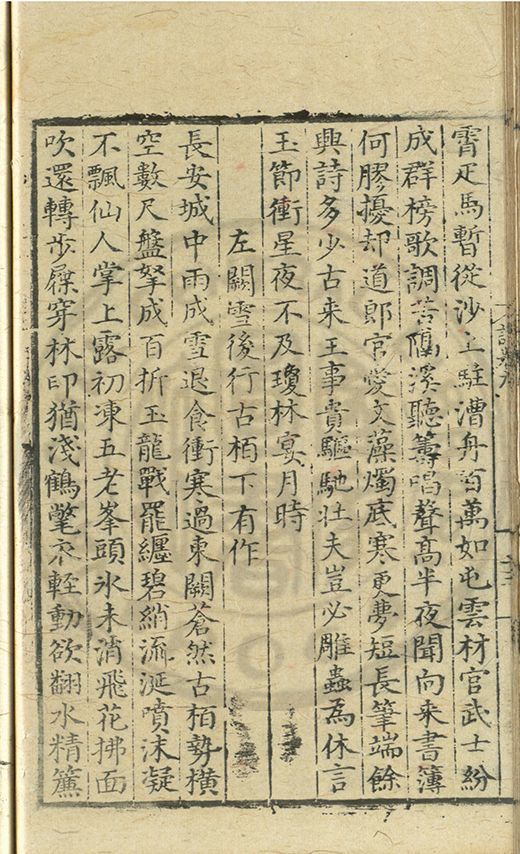 霄疋馬暫從沙上駐漕舟百萬如屯雲材官武士紛
成群榜歌調苦隔溪聽籌唱聲高半夜聞向来書簿
何膠擾却道郎官愛文藻燭底寒更夢短長筆端餘
興詩多少古来王事貴驅馳壮夫豈必雕蟲為休言
玉節衝星夜不及瓊林宴月時
左闕雪後行古栢下有作
長安城中雨成雪退食衝寒過東闕蒼然古栢勢橫
空數尺盤拏成百折玉龍戰罷纏碧綃流涎噴沫凝
不飄仙人掌上露初凍五老峯頭氷未消飛花拂面
吹還轉步屧穿林印猶淺鶴氅衣輕動欲翻水精簾